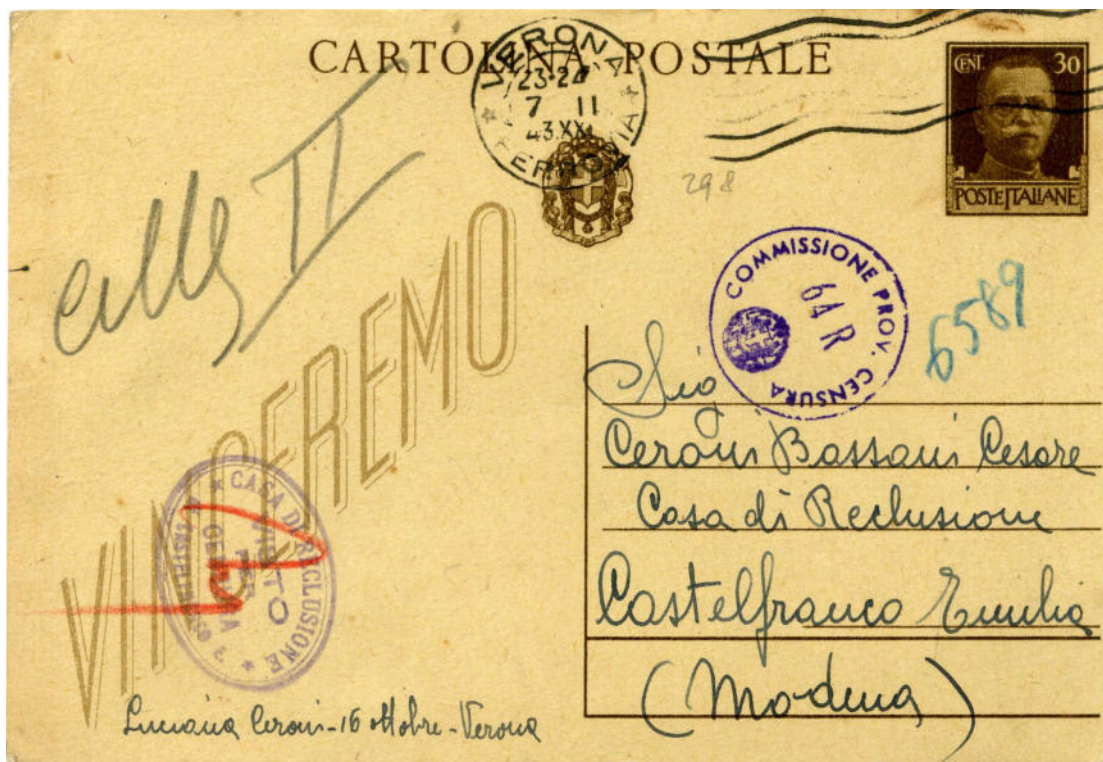 CARTOLINA POSTALE
VERONA
23-24
7 II
43.XXI
FERROVIA
CENT. 30
POSTE ITALIANE
II
298
VINCEREMO
COMMISSIONE PROV. CENSURA
64 R
6589
Sig
Ceroni Bassani Cesare
Casa di Reclusione
Castelfranco Emilia
(Modena)
CASA DI RECLUSIONE
VISTO
PER
CENSURA
CASTELFRANCO E.
Luciana Ceroni - 16 ottobre - Verona